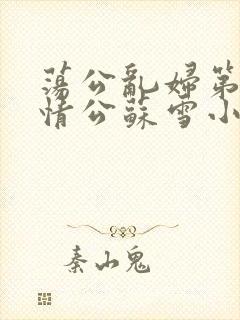 蕩公亂婦第
情公蘇雪小
秦山鬼